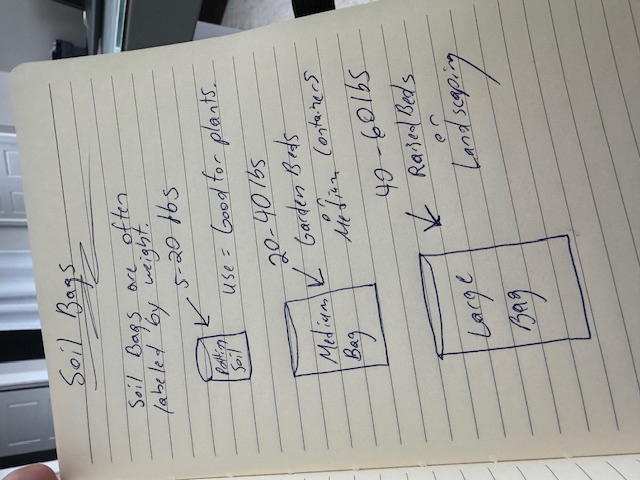 Soil Bags
Soil Bags are often
labeled by weight.
5-20 lbs
Potting
Soil
use = Good for plants.
20-40 lbs
Garden Beds
or
Medium Containers
Medium
Bag
40-60 lbs
Raised Beds
or
Landscaping
Large
Bag